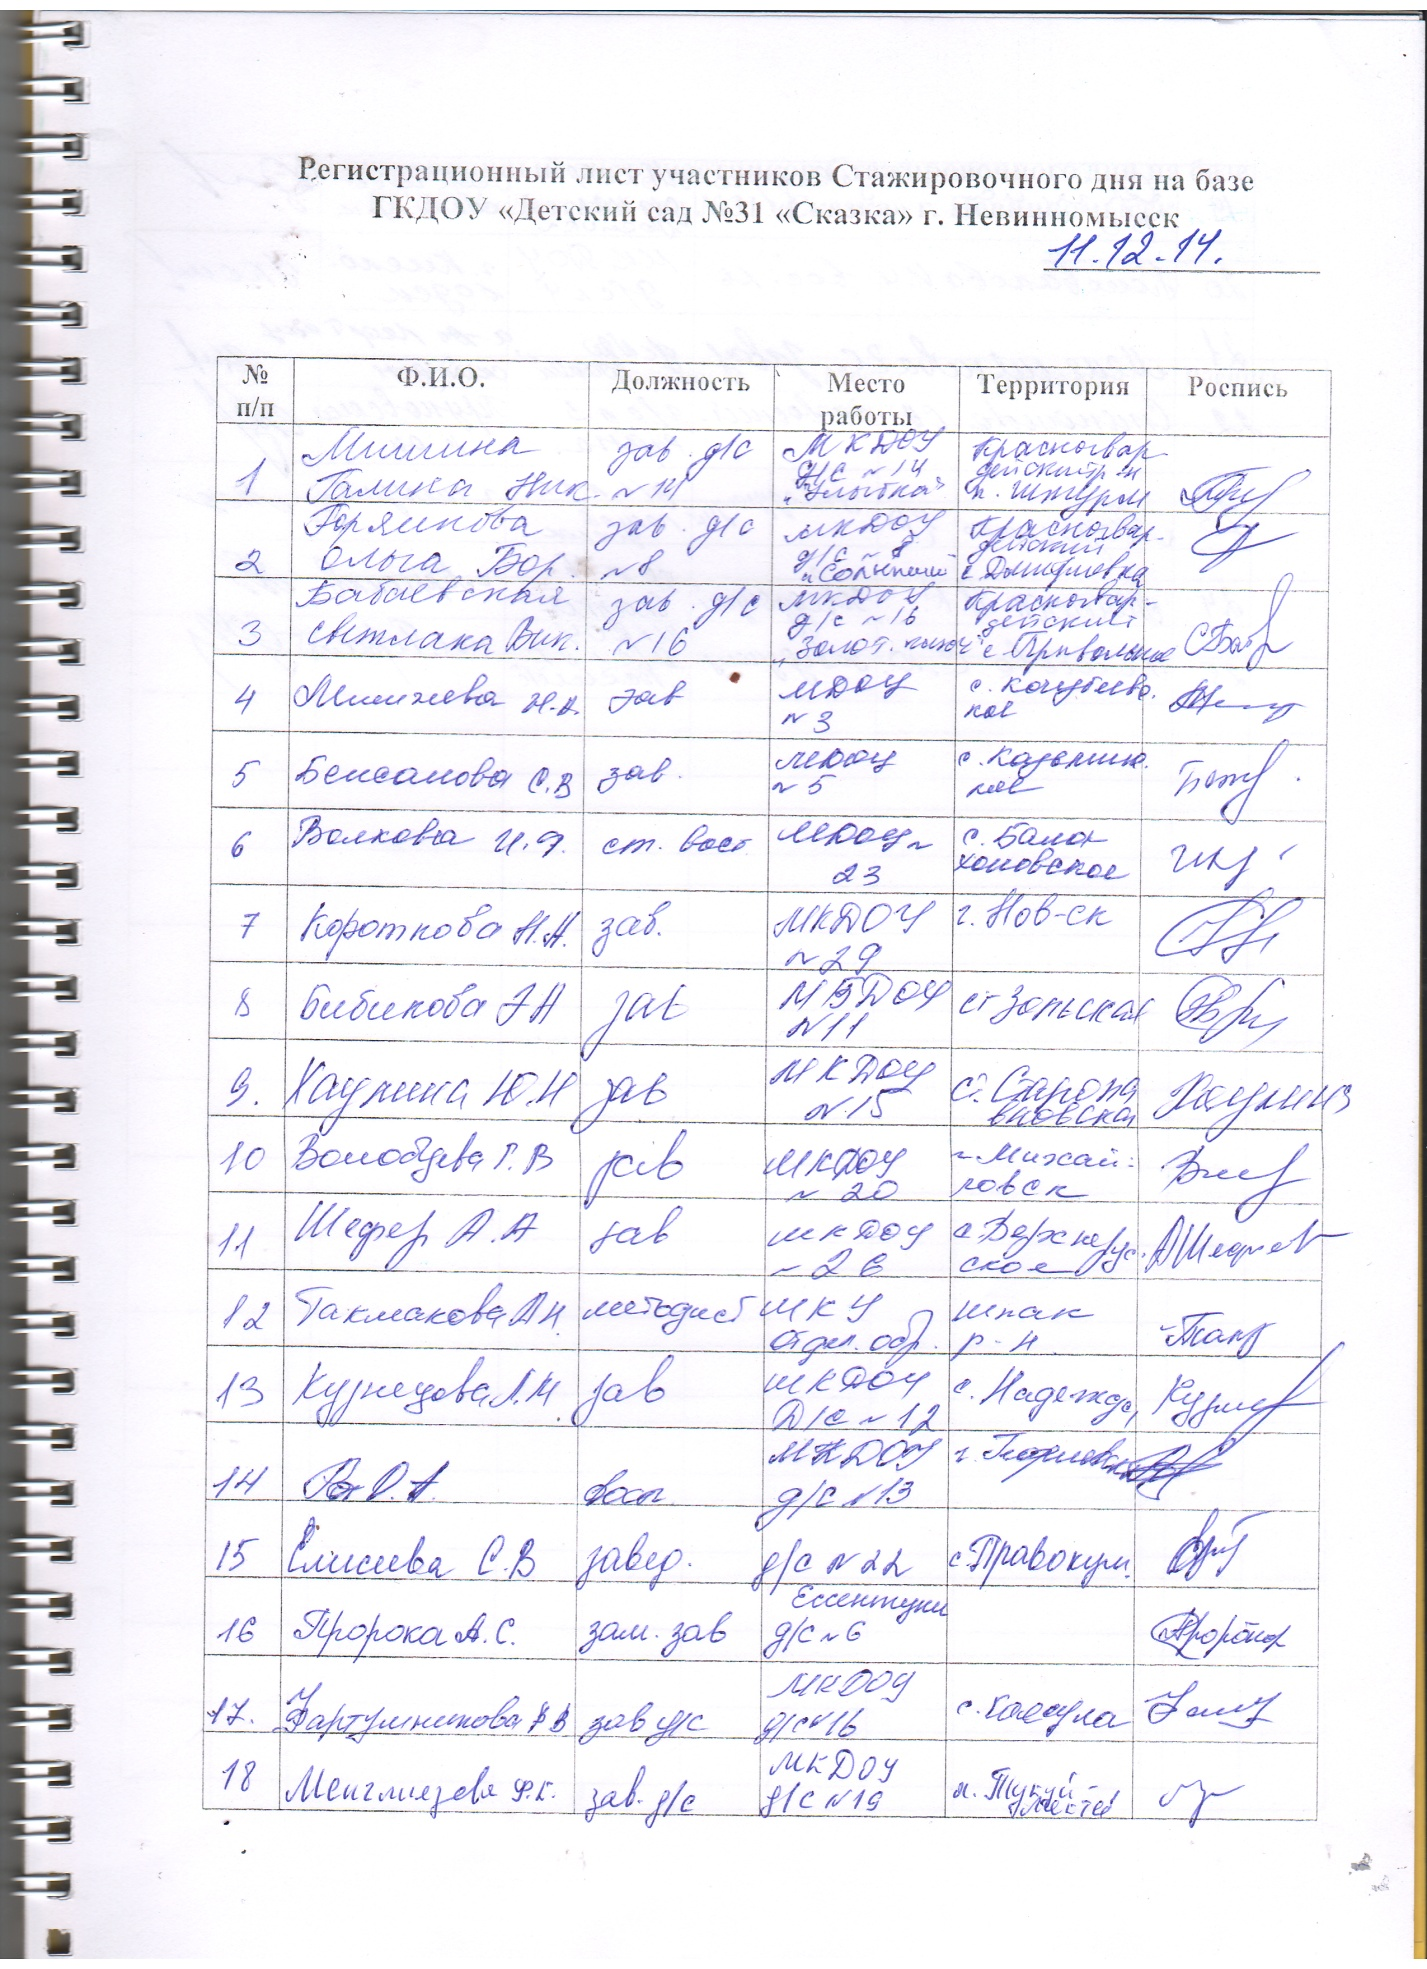 Регистрационный лист участников Стажировочного дня на базе
ГКДОУ «Детский сад №31 «Сказка» г. Невинномысск
11.12.14.
№ п/п Ф.И.О. Должность Место работы Территория Роспись
1 Мишина Галина Ник. зав. д/с №14 МКДОУ д/с №14 "Улыбка" Красногвардейский р-н п. Штурм
2 Ольга Бор. зав. д/с №8 МКДОУ д/с №8 Красногвардейский с. Дмитриевка
3 Бабаевская Светлана Вик. зав. д/с №16 МКДОУ д/с №16 "Золот. ключ" Красногвардейский с. Привольное
4 Н.А. зав МДОУ №3 с. Кочубеевское
5 С.В зав. МДОУ №5 с. Казьминское
6 Волкова И.Ф. ст. восп. МДОУ № 23 с. Балахоновское
7 Короткова Н.Н. зав. МКДОУ №29 г. Нов-ск
8 Бибикова зав МБДОУ №11 ст Зольская
9. Хаунина Ю.Н зав МКДОУ №15 ст. Хаунина
10 Г.В зав МКДОУ № 20 г. Михайловск
11 Шефер А.А зав МКДОУ №26 с. Верхнерусское АШефер
12 Такмакова методист МКУ отдел. обр. шпак р-н
13 Кузнецова зав МКДОУ Д/с №12 с. Надежда
14 О.А. восп. МКДОУ д/с №13 г. Георгиевск
15 Елисеева С.В завед. д/с №22 с. Правокум.
16 Пророка А.С. зам. зав Ессентуки д/с №6
17. зав д/с МКДОУ д/с №16
18 Ф.К. зав. д/с МКДОУ д/с №19